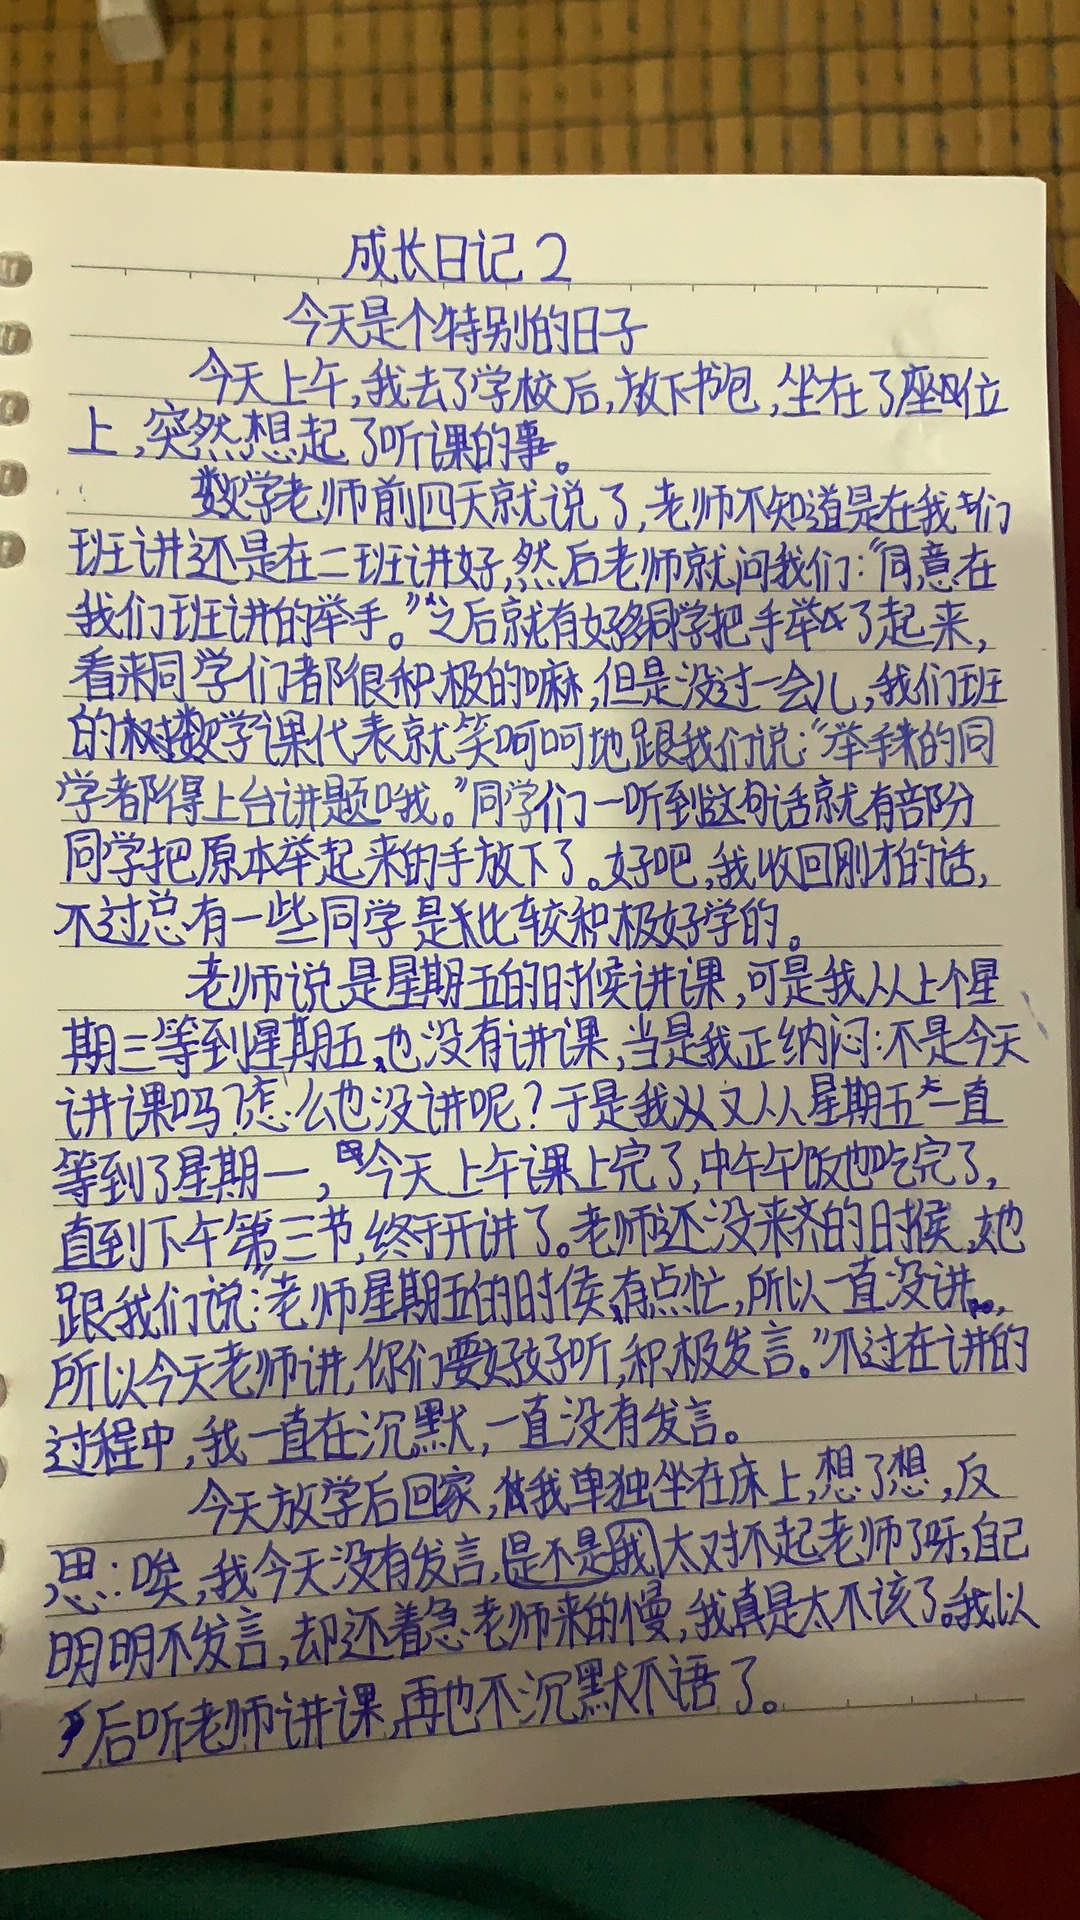 成长日记2
今天是个特别的日子
今天上午,我去了学校后,放下书包,坐在了座位
上,突然想起了听课的事。
数学老师前四天就说了,老师不知道是在我们
班讲还是在二班讲好,然后老师就问我们:“同意在
我们班讲的举手。”之后就有好多同学把手举了起来,
看来同学们都很积极的嘛,但是没过一会儿,我们班
的数学课代表就笑呵呵地跟我们说:“举手的同
学都得上台讲题哦。”同学们一听到这句话就有部分
同学把原本举起来的手放下了。好吧,我收回刚才的话,
不过总有一些同学是比较积极好学的。
老师说是星期五的时候讲课,可是我从上个星
期三等到星期五,也没有讲课,当是我正纳闷:不是今天
讲课吗?怎么也没讲呢?于是我又从星期五一直
等到了星期一,今天上午课上完了,中午午饭也吃完了,
直到下午第三节,终于开讲了。老师还没来齐的时候,她
跟我们说:“老师星期五的时侯,有点忙,所以一直没讲,
所以今天老师讲,你们要好好听,积极发言。”不过在讲的
过程中,我一直在沉默,一直没有发言。
今天放学后回家,我单独坐在床上,想了想,反
思:唉,我今天没有发言,是不是我太对不起老师了呀,自己
明明不发言,却还着急老师来的慢,我真是太不该了。我以
后听老师讲课,再也不沉默不语了。